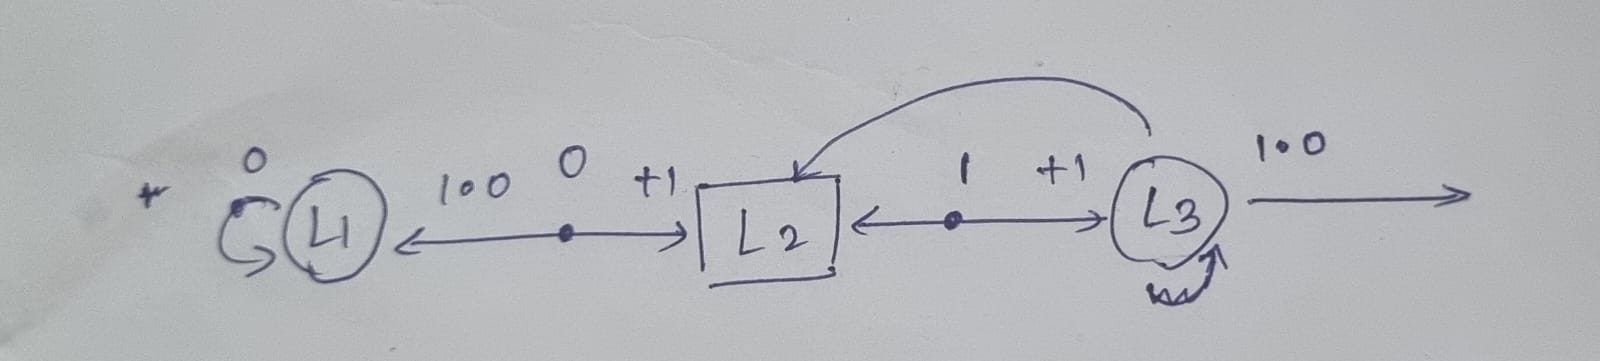 + 0 L1 1.0 0 +1 L2 1 +1 L3 1.0